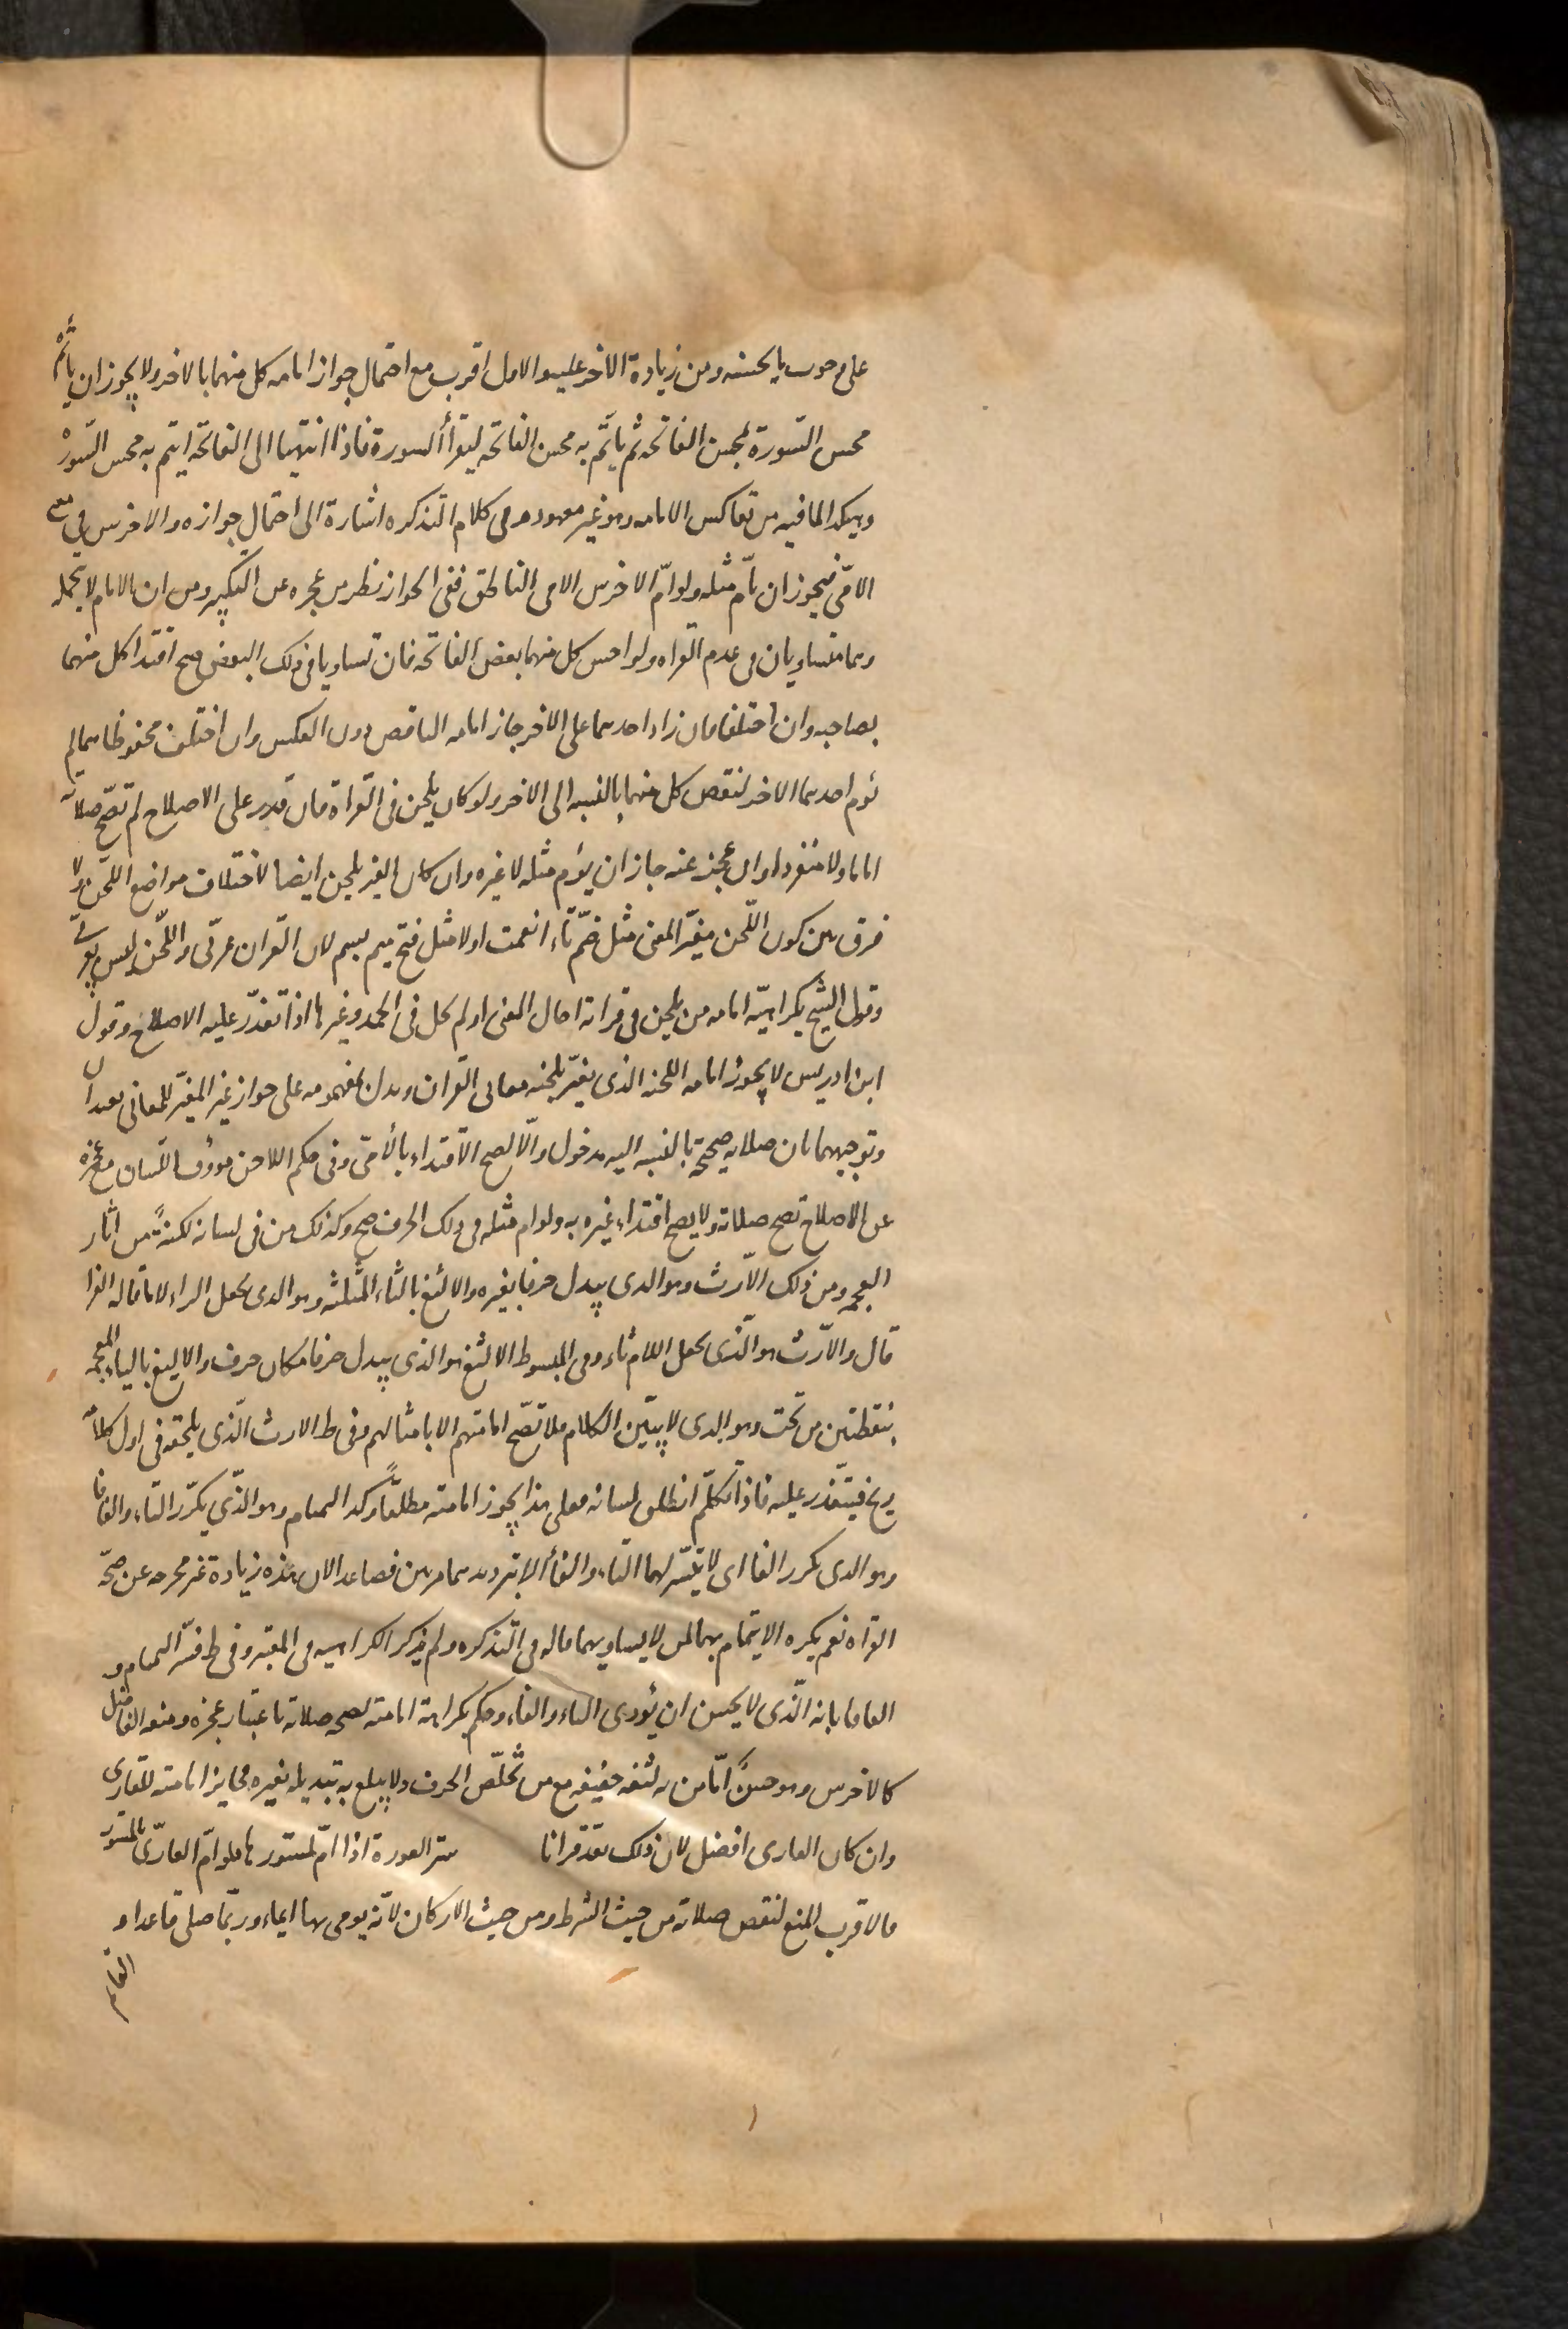 على وجوب ما يحسنه ومن زيادة الاخر عليه والاول اقرب مع احتمال جواز امامه كل منهما بالاخر ولا يجوز ان ياتم
محسن السّورة بمحسن الفاتحه ثم ياتّم به محسن الفاتحه ليقرأ السورة فاذا انتهيا الى الفاتحه ايتم به محسن السّورة
وهكذا لما فيه من تعاكس الامامه وهو غير معهود و في كلام التذكره اشارة الى احتمال جوازه والاخرس في معنى
الامّي فيجوز ان يأم مثله ولو امّ الاخرس الامي الناطق ففي الجواز نظر من عجزه عن التكبير ومن ان الامام لا يتحمله
وهما متساويان في عدم القراه ولو احسن كل منهما بعض الفاتحه فان تساويا في ذلك البعض صح اقتدا كل منهما
بصاحبه وان اختلفا فان زاد احدهما على الاخر جاز امامه الناقص دون العكس وان اختلف محفوظاهما لم
يؤم احدهما الاخر لنقص كل منهما بالنسبه الى الاخر ولو كان يلحن في القراة فان قدر على الاصلاح لم تصّح صلاته
اماما ولا منفردا وان عجز عنه جاز ان يؤم مثله لا غيره وان كان الغير يلحن ايضا لاختلاف مواضع اللّحن ولا
فرق بين كون اللّحن مغيّر المعنى مثل ضمّ تاء انعمت اولا مثل فتح ميم بسم لان القران عربّي واللّحن ليس بعربّي
وقول الشيخ بكراهيّه امامه من يلحن في قراته احال المعنى او لم يحل في الحمد وغيرها اذا تعذّر عليه الاصلاح وقول
ابن ادريس لا يجوز امامه اللحنه الذي يغيّر بلحنه معاني القران ويدل بمفهومه على جواز غير المغيّر للمعاني بعيدان
وتوجيههما بان صلاته صحيحة بالنسبه اليه مدخول والّا لصح الاقتداء بالأمّي وفي حكم اللاحن مووف اللسان مع عجزه
عن الاصلاح تصح صلاته ولا يصح اقتداء غيره به ولو ام مثله في ذلك الحرف صح وكذلك من في لسانه لكنةً من اثار
العجمه ومن ذلك الآرث وهو الذي يبدل حرفا بغيره والالثغ بالثاء المثلثه وهو الذي يجعل الراء لاما قاله الفرا
قال والارّث هو الّذي يجعل اللام ثاء وفي المبسوط الالثغ هو الذي يبدل حرفا مكان حرف والاليغ بالياء المعجمه
بنقطتين من تحت وهو الذي لا يبيّن الكلام فلا تصّح امامتهم الا بامثالهم وفي ط الارث الّذي يلحقه في اول كلامه
ريح فيتعذر عليه فاذا تكلّم انطلق لسانه فعلى هذا يجوز امامته مطلقاً وكذا التمتام وهو الذّي يكرّر التاء والفافا
وهو الذي يكرر الفا اي لا يتيسّر لهما التاء والفأ الا بترديدهما مرتين فصاعدا لان هذه زيادة غير مخرجه عن صحّة
القراه نعم يكره الايتمام بهما لمن لا يساويهما قاله في التذكره ولم يذكر الكراهيه في المعتبر وفي ط فسّر التمتام و
الفافا بانه الّذي لا يحسن ان يؤدي التاء والفاء وحكم بكراهة امامته لصحه صلاته باعتبار عجزه ومنعه الفاضل
كالاخرس وهو حسنٌ امّا من به لثغه خفيفه مع من تُخلّص الحرف ولا يبلغ به تبديله بغيره فجايز امامته للقاري
وان كان القاري افضل لان ذلك يعّد قرانا ستر العورة اذا امّ لمستورها فلو امّ العارّي المستور
فالاقرب المنع لنقص صلاته من حيث الشرط ومن حيث الاركان لانّه يومى لها ايماء وربّما صلى قاعدا و
القايم